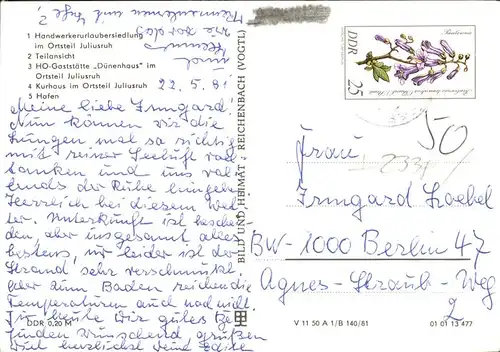 1 Handwerkerurlaubersiedlung
im Ortsteil Juliusruh
2 Teilansicht
3 HO-Gaststätte „Dünenhaus" im
Ortsteil Juliusruh
4 Kurhaus im Ortsteil Juliusruh
5 Hafen
22.5.81
Meine liebe Irmgard!
Nun können wir die
Lungen mal so richtig
mit reiner Seeluft voll
tanken und uns vol-
lends der Ruhe hingeben.
Herrlich bei diesem Wet-
ter. Unterkunft ist beschei-
den, aber insgesamt alles
bestens, nur leider ist der
Strand sehr verschmutzt.
Aber zum Baden reichen die
Temperaturen auch noch nicht.
Für heute Dir gutes Be-
finden wünschend grüßen
Dich herzlichst Deine Edith
und
DDR 0,20 M
BILD UND HEIMAT REICHENBACH (VOGTL)
DDR
25
50
Frau
Irmgard Loebel
BW-1000 Berlin 47
Agnes-Straub-Weg
2
V 11 50 A 1/B 140/81
01 01 13 477